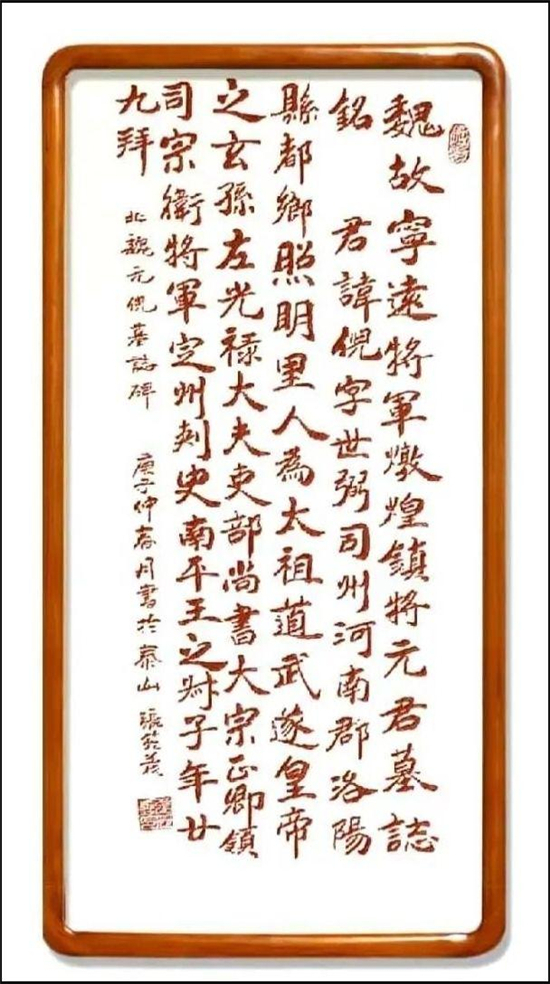 魏故寧遠將軍燉煌鎮將元君墓誌
銘 君諱倪字世弼司州河南郡洛陽
縣都鄉照明里人為太祖道武遂皇帝
之玄孫左光祿大夫吏部尚書大宗正卿領
司宗衛將軍定州刺史南平王之財子年廿
九拜
北魏元倪墓誌碑 庚子仲春月書於泰山 張